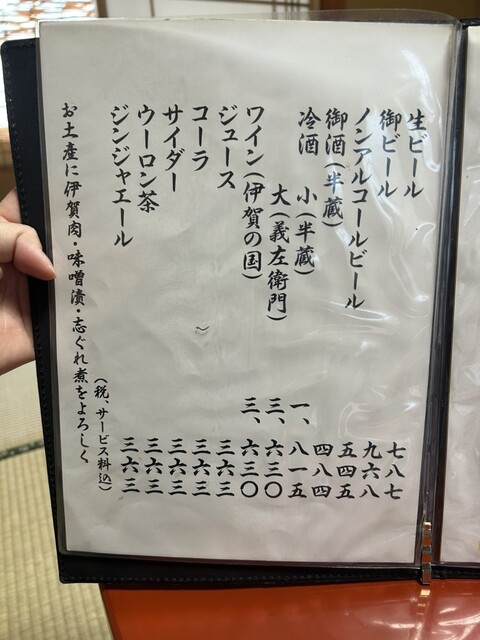 生ビール 七八七
御ビール 九六八
ノンアルコールビール 五四五
御酒(半蔵) 四八四
冷酒 小(半蔵) 一、八一五
大(義左衛門) 三、六三〇
ワイン(伊賀の国) 三、六三〇
ジュース 三六三
コーラ 三六三
サイダー 三六三
ウーロン茶 三六三
ジンジャエール 三六三
(税、サービス料込)
お土産に伊賀肉・味噌漬・志ぐれ煮をよろしく